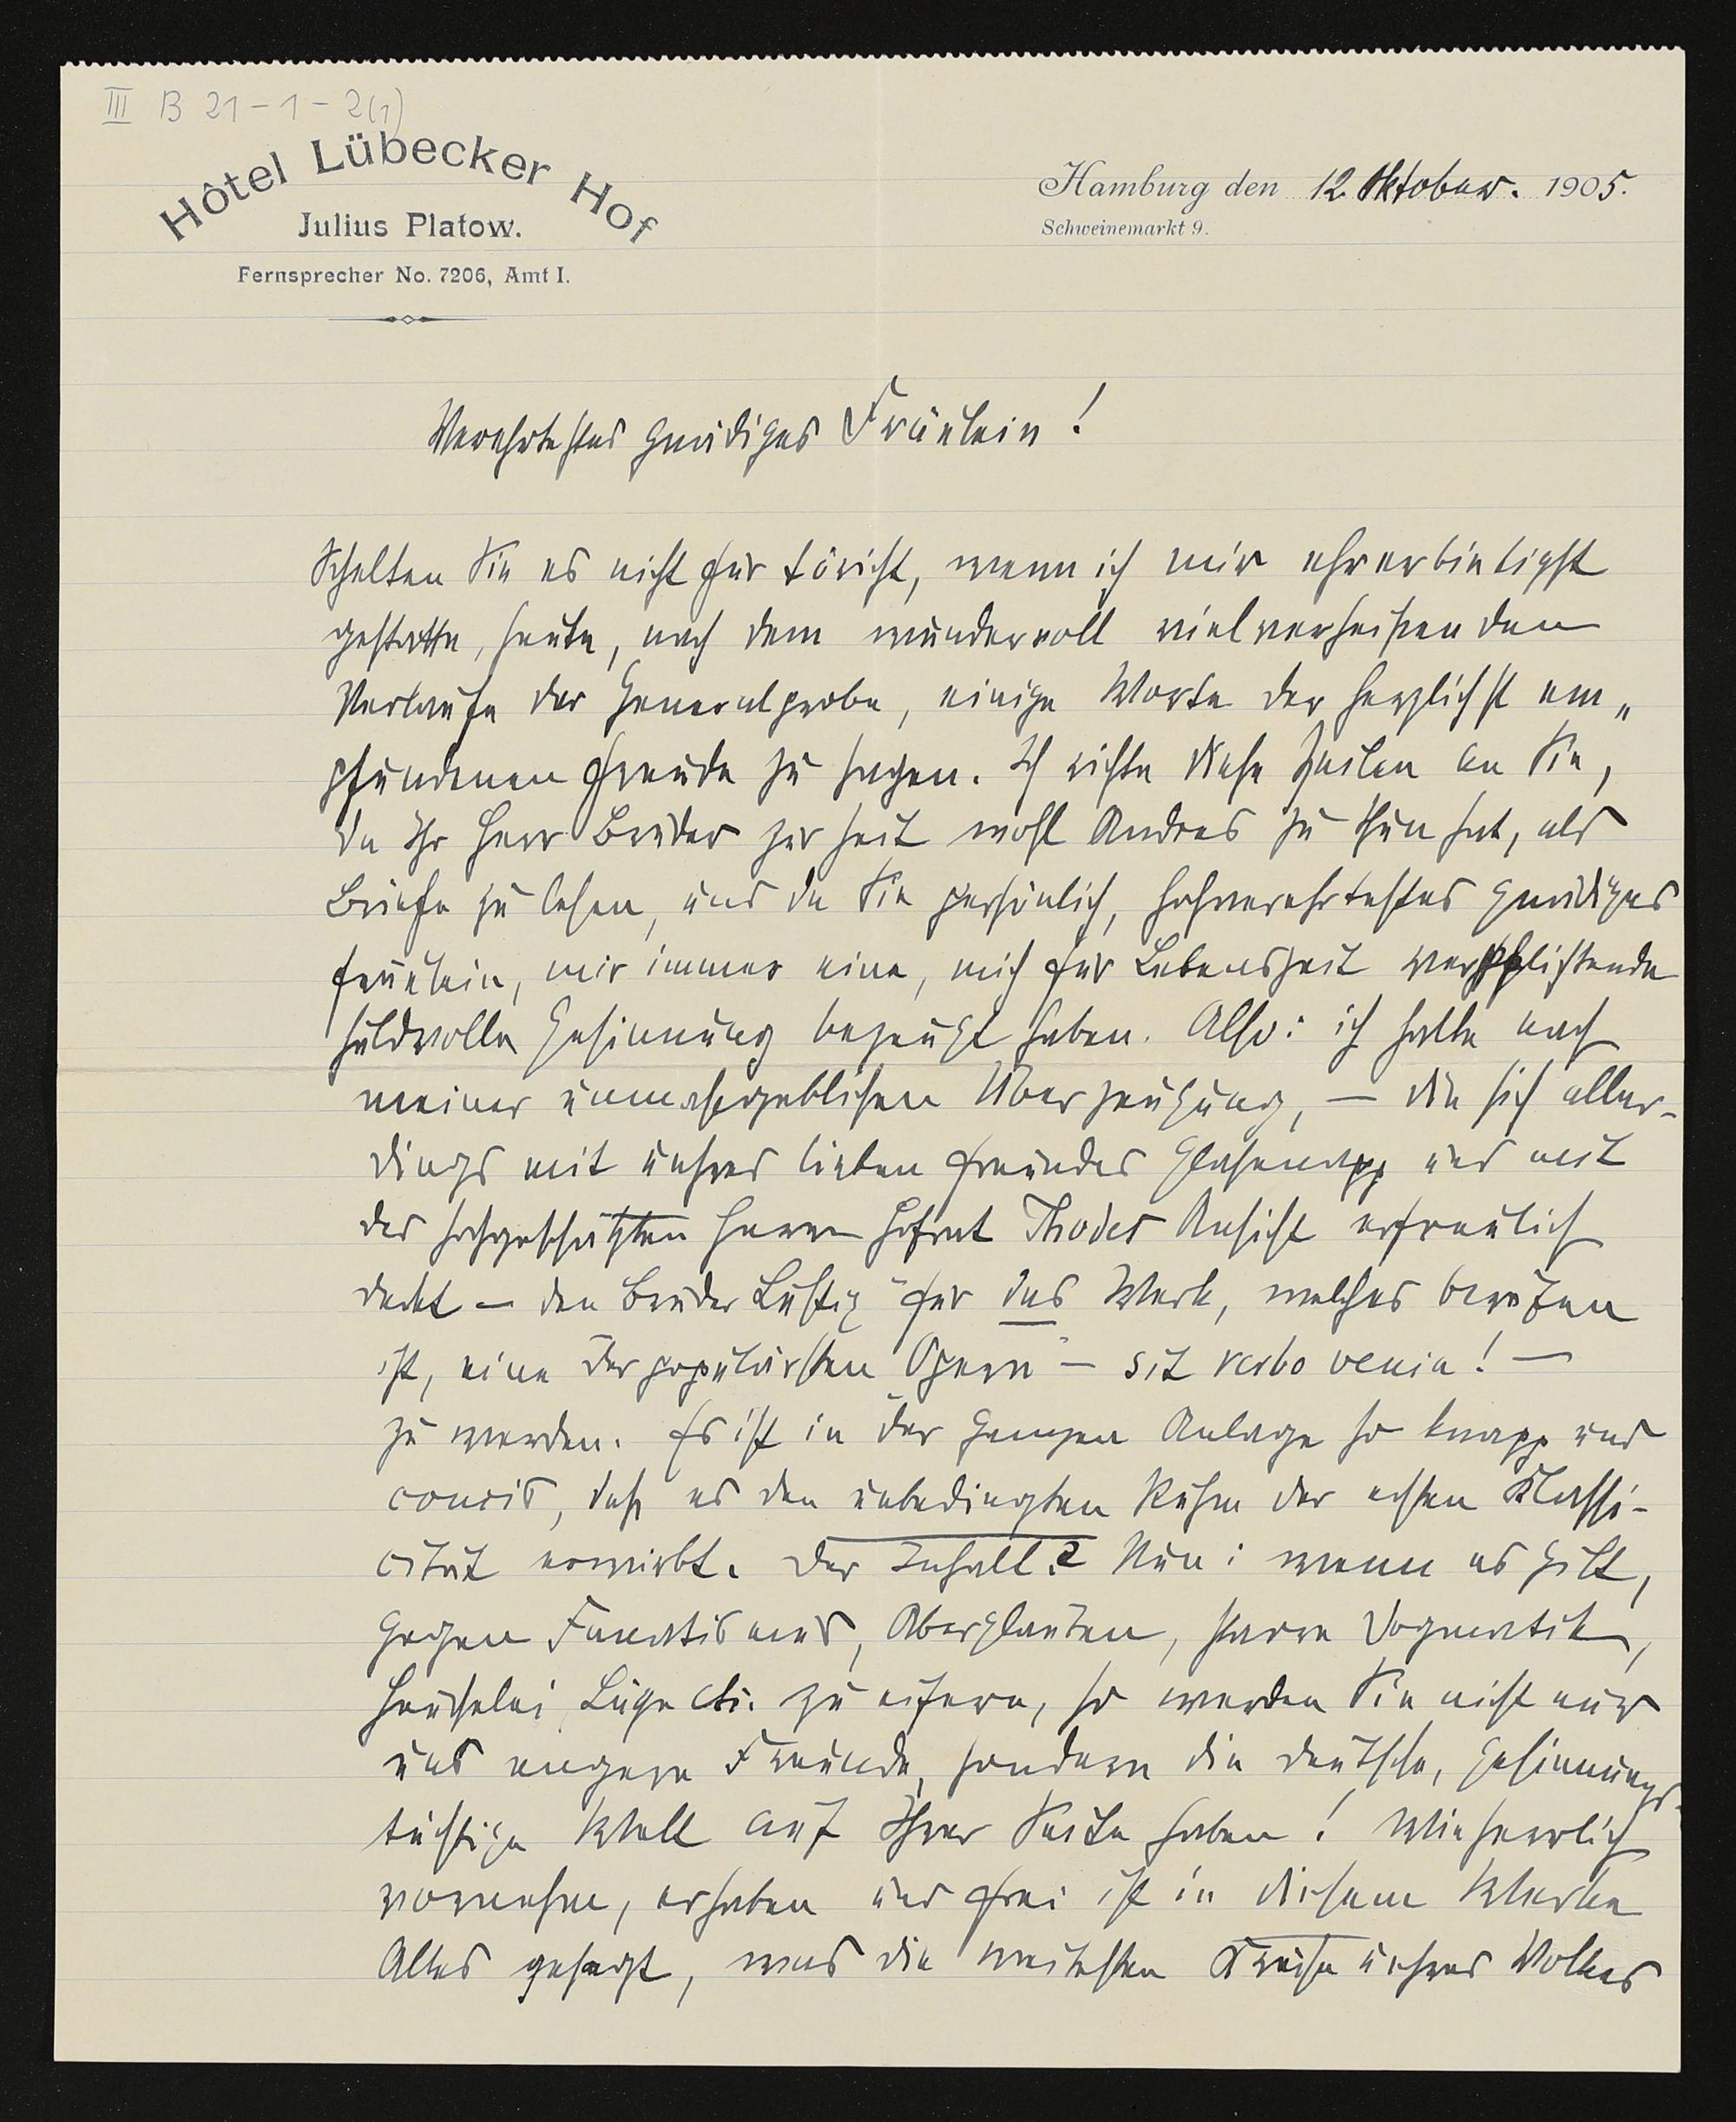 III B 21-1-2(1)
Hôtel Lübecker Hof
Julius Platow.
Fernsprecher No. 7206, Amt I.
Hamburg den 12. Oktober. 1905.
Schweinemarkt 9.
Verehrtestes gnädiges Fräulein!
Schelten Sie es nicht für töricht, wenn ich mir ehrerbietigst
gestatte, heute, nach dem wundervoll vielverheißenden
Verlaufe der Generalprobe, einige Worte der herzlichst em„
pfundenen Freude zu sagen. Ich richte diese Zeilen an Sie,
da Ihr Herr Bruder zur Zeit wohl Andres zu thun hat, als
Briefe zu lesen, und da Sie persönlich, hochverehrtestes gnädiges
Fräulein, mir immer eine, mich für Lebenszeit verpflichtende
huldvolle Gesinnung bezeugt haben. Also: ich halte nach
meiner unmaßgeblichen Überzeugung, — die sich aller-
dings mit unsres lieben Freundes Glasenapp und mit
des hochgeschätzten Herrn Hofrat Thodes Ansicht erfreulich
deckt — den Bruder Lustig" für das Werk, welches berufen
ist, eine der populärsten "Opern" — sit verbo venia! —
zu werden. Es ist in der ganzen Anlage so knapp und
concis, daß es den unbedingten Ruhm der echten Klassi-
cität erwirbt. Der Inhalt? Nun: wenn es gilt,
gegen Fanatismus, Aberglauben, starre Dogmatik,
Heuchelei, Lüge etc. zu eifern, so werden Sie nicht nur
uns engere Freunde, sondern die deutsche, gesinnungs-
tüchtige Welt auf Ihrer Seite haben! Wie herrlich
vornehm, erhaben und frei ist in diesem Werke
Alles gesagt, was die weitesten Kreise unsres Volkes